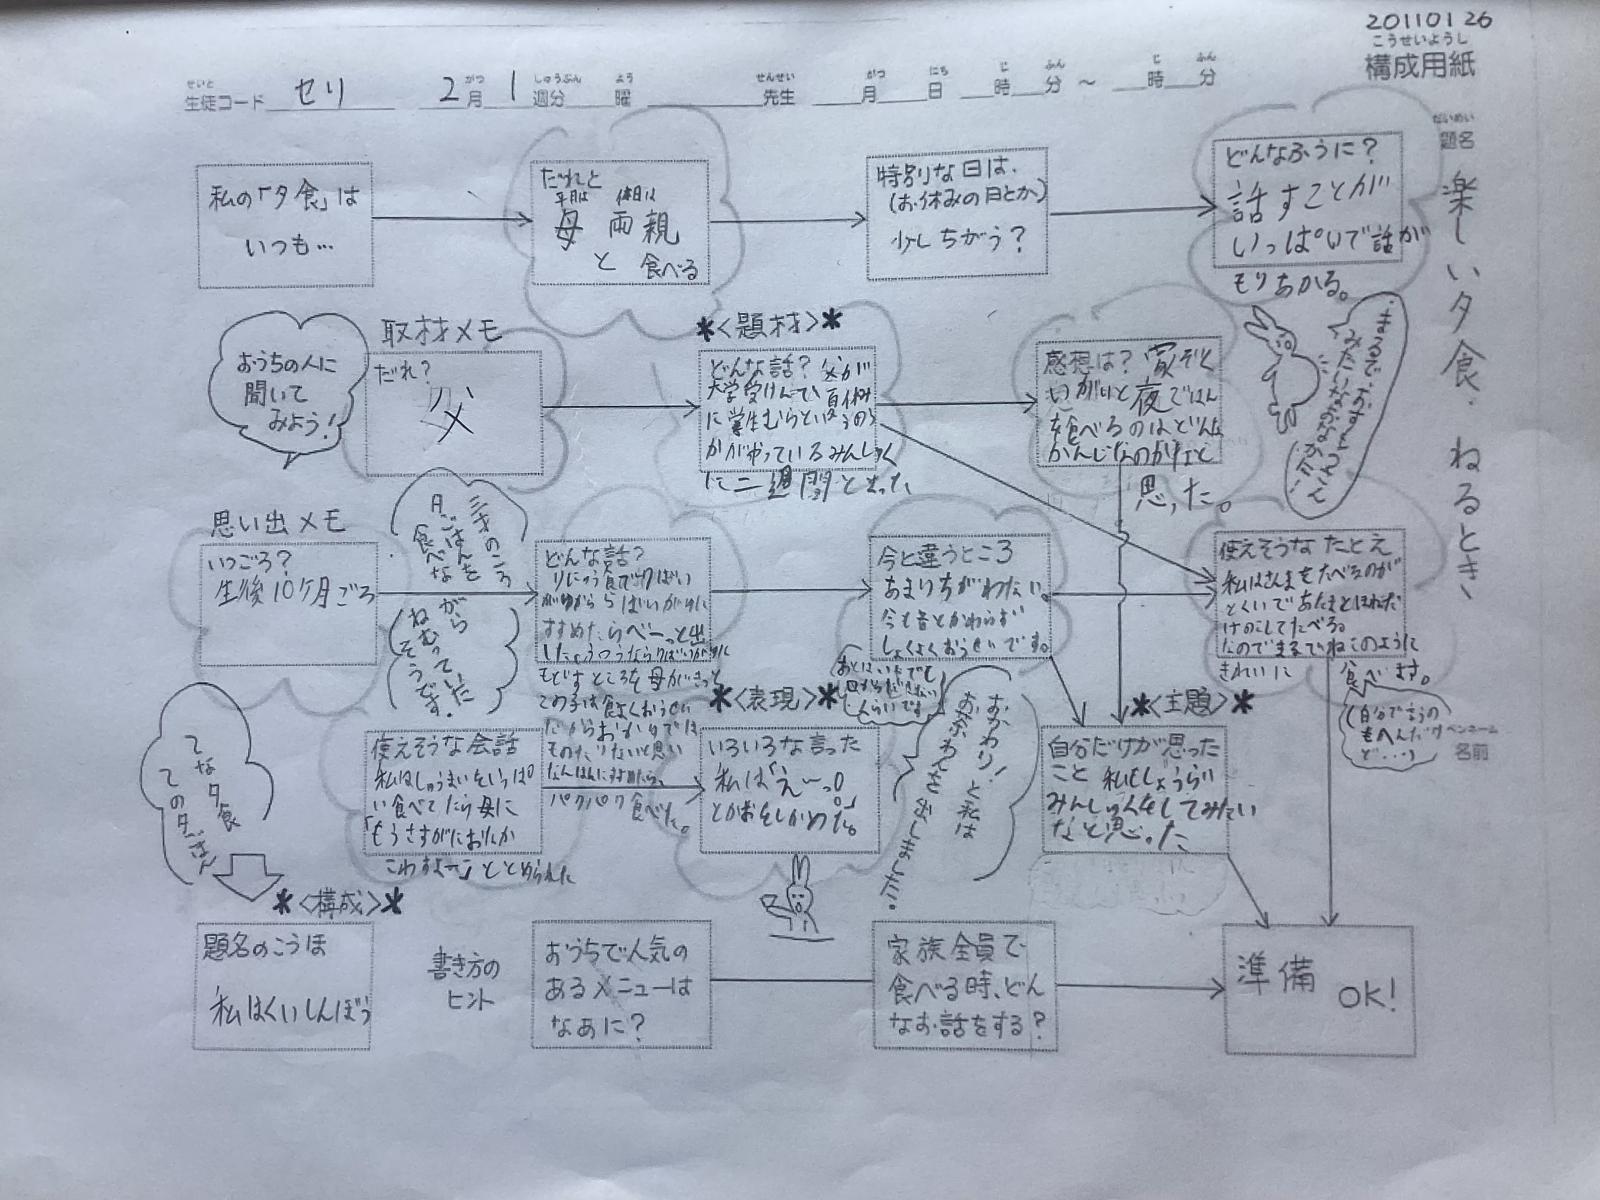 20110126
こうせいようし
構成用紙
せいと がつ しゅうぶん よう せんせい がつ にち じ ふん じ ふん
生徒コード セリ 2月 1週分 曜 先生 月 日 時 分 ～ 時 分
だいめい
題名
楽しい夕食、ねるとき、
私の「夕食」は
いつも…
だれと
平日は 休日は
母 両親
と 食べる
特別な日は、
(お休みの日とか)
少しちがう?
どんなふうに?
話すことが
いっぱいで話が
もりあがる。
おうちの人に
聞いて
みよう!
取材メモ
だれ?
父
*〈題材〉*
どんな話? 父が
大学受けんで、夏休み
に学生むらという
がやっているみんしゅく
に二週間とまった
感想は? 家ぞく
いがいと夜ごはん
を食べるのはどんな
かんじなのかなと
思った。
まるで、
思い出メモ
いつごろ?
生後10ヶ月ごろ
三才のころ
ごはんを
食べな
がら
ねむっていた
そうです。
どんな話?
すすめたらべーっと出
もどすところを母がきっと
この子は食よくおうせい
だからおかゆでは
ものたりないと思い
パクパク食べた。
今と違うところ
あまりちがわない。
今も昔とかわらず
しょくよくおうせいです。
使えそうなたとえ
私はさんまをたべるのが
とくいであたまとほねだ
けのこしてたべる。
なのでまるでねこのように
きれいに 食べます。
(自分で言うの
もへんだけ
ど・・・)
ペンネーム
名前
てな夕食
使えそうな会話
私はしゅうまいをいっぱ
い食べてたら母に
「もうさすがにおなか
こわすよー」ととめられた
*〈表現〉*
いろいろな言った
私は「えーっ。」
とかおをしかめた。
おかわり!と私は
*〈主題〉*
自分だけが思った
こと 私もしょうらい
みんしゅくをしてみたい
なと思った
*〈構成〉*
題名のこうほ
私はくいしんぼう
書き方の
ヒント
おうちで人気の
あるメニューは
なあに?
家族全員で
食べる時、どん
なお話をする?
準備
OK!